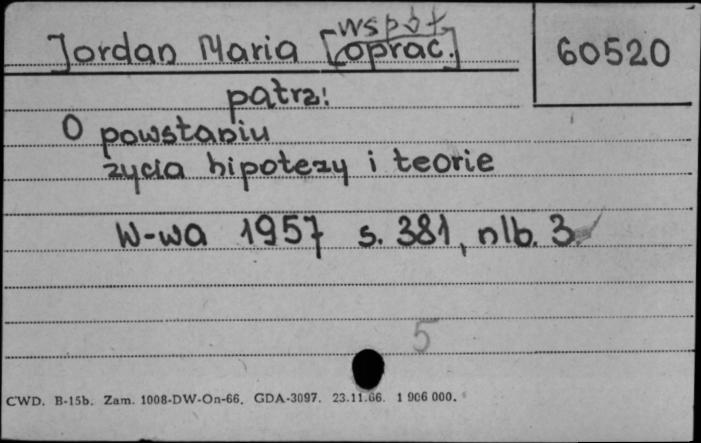 współ.
Jordan Maria [oprac.]
60520
patrz:
O powstaniu
życia hipotezy i teorie
W-wa 1957 s. 381, nlb. 3.
5
CWD. B-15b. Zam. 1008-DW-On-66. GDA-3097. 23.11.66. 1 906 000.